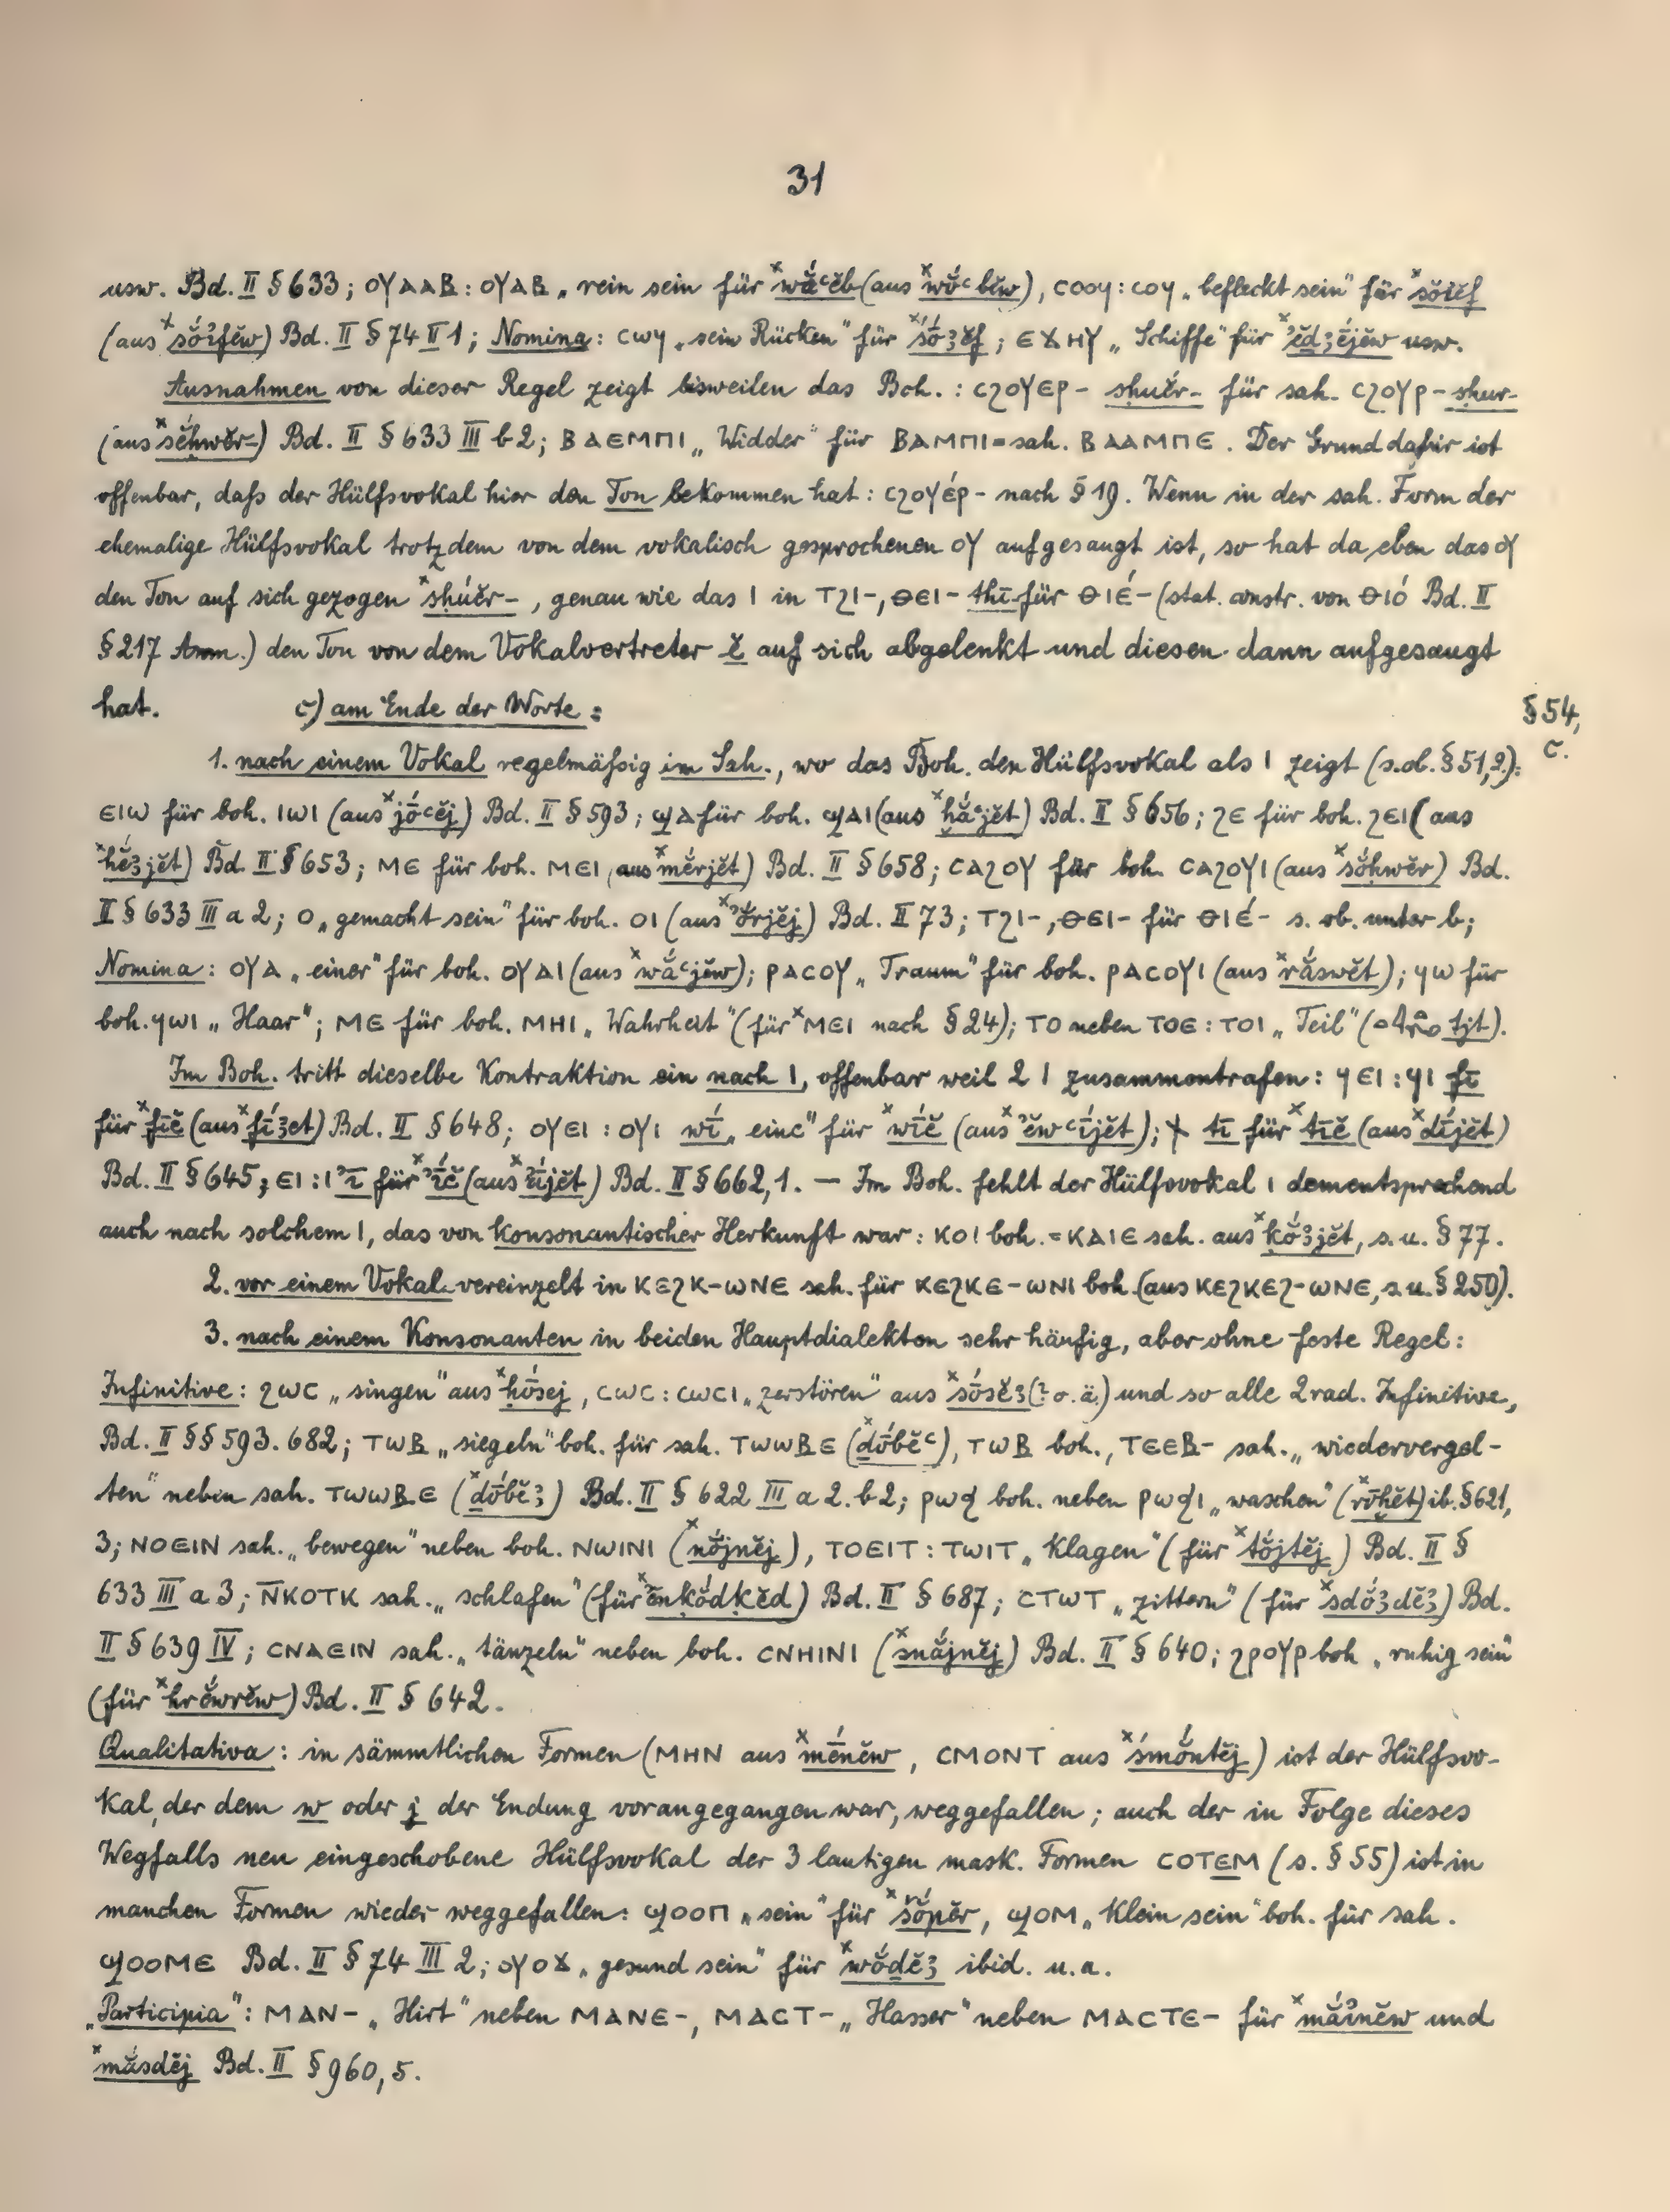 31
usw. Bd. II § 633; ⲟⲩⲁⲁⲃ : ⲟⲩⲁⲃ „rein sein für ˣwắꜥĕb (aus ˣwŏ́ꜥbĕw), ⲥⲟⲟϥ : ⲥⲟϥ „befleckt sein" für ˣsŏ́ꜣĕf
(aus ˣsŏ́ꜣfĕw) Bd. II § 74 II 1; Nomina: ⲥⲱϥ „sein Rücken" für ˣsṓꜣĕf; ⲉϫⲏⲩ „Schiffe" für ˣꜣĕdꜣḗjĕw usw.
Ausnahmen von dieser Regel zeigt bisweilen das Boh.: ⲥϩⲟⲩⲉⲣ- sḥuĕ́r- für sah. ⲥϩⲟⲩⲣ- sḥur-
(aus ˣsĕḥwĕr-) Bd. II § 633 III b 2; ⲃⲁⲉⲙⲡⲓ „Widder" für ⲃⲁⲙⲡⲓ = sah. ⲃⲁⲁⲙⲡⲉ. Der Grund dafür ist
offenbar, daſs der Hülfsvokal hier den Ton bekommen hat: ⲥϩⲟⲩⲉ́ⲣ- nach § 19. Wenn in der sah. Form der
ehemalige Hülfsvokal trotzdem von dem vokalisch gesprochenen ⲟⲩ aufgesaugt ist, so hat da eben das ⲟⲩ
den Ton auf sich gezogen ˣsḥúĕr-, genau wie das ⲓ in ⲧϩⲓ-, ⲑⲉⲓ- thī- für ⲑⲓⲉ́- (stat. constr. von ⲑⲓⲟ́ Bd. II
§ 217 Anm.) den Ton von dem Vokalvertreter ĕ auf sich abgelenkt und diesen dann aufgesaugt
hat. c) am Ende der Worte: § 54,
c.
1. nach einem Vokal regelmäſsig im Sah., wo das Boh. den Hülfsvokal als ⲓ zeigt (s.ob. § 51,2.):
ⲉⲓⲱ für boh. ⲓⲱⲓ (aus ˣjṓꜥĕj) Bd. II § 593; ϣⲁ für boh. ϣⲁⲓ (aus ˣḫắꜥjĕt) Bd. II § 656; ϩⲉ für boh. ϩⲉⲓ (aus
ˣhĕ́ꜣjĕt) Bd. II § 653; ⲙⲉ für boh. ⲙⲉⲓ (aus ˣmĕ́rjĕt) Bd. II § 658; ⲥⲁϩⲟⲩ für boh. ⲥⲁϩⲟⲩⲓ (aus ˣsŏ́ḥwĕr) Bd.
II § 633 III a 2; ⲟ „gemacht sein" für boh. ⲟⲓ (aus ˣꜣŏ́rjĕj) Bd. II 73; ⲧϩⲓ-, ⲑⲉⲓ- für ⲑⲓⲉ́- s. ob. unter b;
Nomina: ⲟⲩⲁ „einer" für boh. ⲟⲩⲁⲓ (aus ˣwắꜥjĕw); ⲣⲁⲥⲟⲩ „Traum" für boh. ⲣⲁⲥⲟⲩⲓ (aus ˣrắswĕt); ϥⲱ für
boh. ϥⲱⲓ „Haar"; ⲙⲉ für boh. ⲙⲏⲓ „Wahrheit" (für ˣⲙⲉⲓ nach § 24); ⲧⲟ neben ⲧⲟⲉ : ⲧⲟⲓ „Teil" (tjt).
Im Boh. tritt dieselbe Kontraktion ein nach ⲓ, offenbar weil 2 ⲓ zusammentrafen: ϥⲉⲓ : ϥⲓ fī
für ˣfīĕ (aus ˣfī́ꜣet) Bd. II § 648; ⲟⲩⲉⲓ : ⲟⲩⲓ wī́ „eine" für ˣwī́ĕ (aus ˣꜣĕwꜥī́jĕt); ϯ tī für ˣtīĕ (aus ˣdī́jĕt)
Bd. II § 645; ⲉⲓ : ⲓ ꜣī für ˣꜣī́ĕ (aus ˣꜣī́jĕt) Bd. II § 662,1. — Im Boh. fehlt der Hülfsvokal ⲓ dementsprechend
auch nach solchem ⲓ, das von konsonantischer Herkunft war: ⲕⲟⲓ boh. = ⲕⲁⲓⲉ sah. aus ˣkŏ́ꜣjĕt, s. u. § 77.
2. vor einem Vokal vereinzelt in ⲕⲉϩⲕ-ⲱⲛⲉ sah. für ⲕⲉϩⲕⲉ-ⲱⲛⲓ boh. (aus ⲕⲉϩⲕⲉϩ-ⲱⲛⲉ, s. u. § 250).
3. nach einem Konsonanten in beiden Hauptdialekten sehr häufig, aber ohne feste Regel:
Infinitive: ϩⲱⲥ „singen" aus ˣḥṓsej, ⲥⲱⲥ : ⲥⲱⲥⲓ „zerstören" aus ˣsṓsĕꜣ (? o. ä.) und so alle 2rad. Infinitive,
Bd. II §§ 593. 682; ⲧⲱⲃ „siegeln" boh. für sah. ⲧⲱⲱⲃⲉ (ˣdṓbĕꜥ), ⲧⲱⲃ boh., ⲧⲉⲉⲃ- sah. „wiedervergel-
ten" neben sah. ⲧⲱⲱⲃⲉ (ˣdṓbĕꜣ) Bd. II § 622 III a 2. b 2; ⲣⲱϧ boh. neben ⲣⲱϧⲓ „waschen" (ˣrṓḫĕt) ib. § 621,
3; ⲛⲟⲉⲓⲛ sah. „bewegen" neben boh. ⲛⲱⲓⲛⲓ (ˣnŏ́jnĕj), ⲧⲟⲉⲓⲧ : ⲧⲱⲓⲧ „klagen" (für ˣtŏ́jtĕj) Bd. II §
633 III a 3; ⲛ̄ⲕⲟⲧⲕ sah. „schlafen" (für ˣĕnḳŏ́dḳĕd) Bd. II § 687; ⲥⲧⲱⲧ „zittern" (für ˣsdŏ́ꜣdĕꜣ) Bd.
II § 639 IV; ⲥⲛⲁⲉⲓⲛ sah. „tänzeln" neben boh. ⲥⲛⲏⲓⲛⲓ (ˣsnắjnĕj) Bd. II § 640; ϩⲣⲟⲩⲣ boh „ruhig sein"
(für ˣhrĕ́wrĕw) Bd. II § 642.
Qualitativa: in sämmtlichen Formen (ⲙⲏⲛ aus ˣmḗnĕw, ⲥⲙⲟⲛⲧ aus ˣśmŏ́ntĕj) ist der Hülfsvo-
kal, der dem w oder j der Endung vorangegangen war, weggefallen; auch der in Folge dieses
Wegfalls neu eingeschobene Hülfsvokal der 3 lautigen mask. Formen ⲥⲟⲧⲉⲙ (s. § 55) ist in
manchen Formen wieder weggefallen: ϣⲟⲟⲡ „sein" für ˣšŏ́pĕr, ϣⲟⲙ „klein sein" boh. für sah.
ϣⲟⲟⲙⲉ Bd. II § 74 III 2; ⲟⲩⲟϫ „gesund sein" für ˣwŏ́ḏĕꜣ ibid. u. a.
„Participia": ⲙⲁⲛ- „Hirt" neben ⲙⲁⲛⲉ-, ⲙⲁⲥⲧ- „Hasser" neben ⲙⲁⲥⲧⲉ- für ˣmắꜣnĕw und
ˣmắsdĕj Bd. II § 960,5.